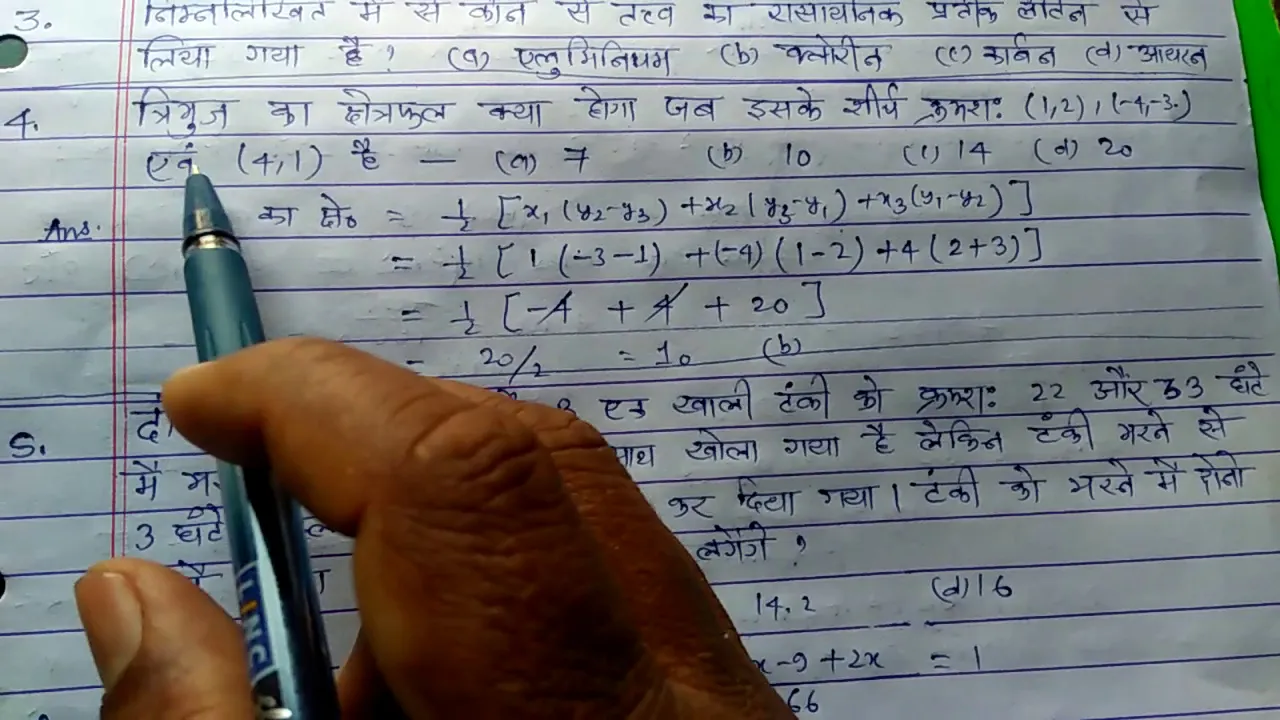 3. निम्नलिखित में से कौन से तत्व का रासायनिक प्रतीक लैटिन से
लिया गया है? (a) एलुमिनियम (b) क्लोरीन (c) कार्बन (d) आयरन
4. त्रिभुज का क्षेत्रफल क्या होगा जब इसके शीर्ष क्रमशः (1,2), (-4,-3)
एवं (4,1) है — (a) 7 (b) 10 (c) 14 (d) 20
Ans. का क्षे० = 1/2 [x₁(y₂-y₃) +x₂(y₃-y₁)+x₃(y₁-y₂)]
= 1/2 [1 (-3-1) +(-4) (1-2) +4 (2+3)]
= 1/2 [-4 + 4 + 20]
= 20/2 = 10 (b)
5. एक खाली टंकी को क्रमशः 22 और 33 घंटे
में खोला गया है लेकिन टंकी भरने से
3 घंटे कर दिया गया। टंकी को भरने में दोनो
लगेंगे ?
14.2 (d) 16
x-9+2x = 1
66